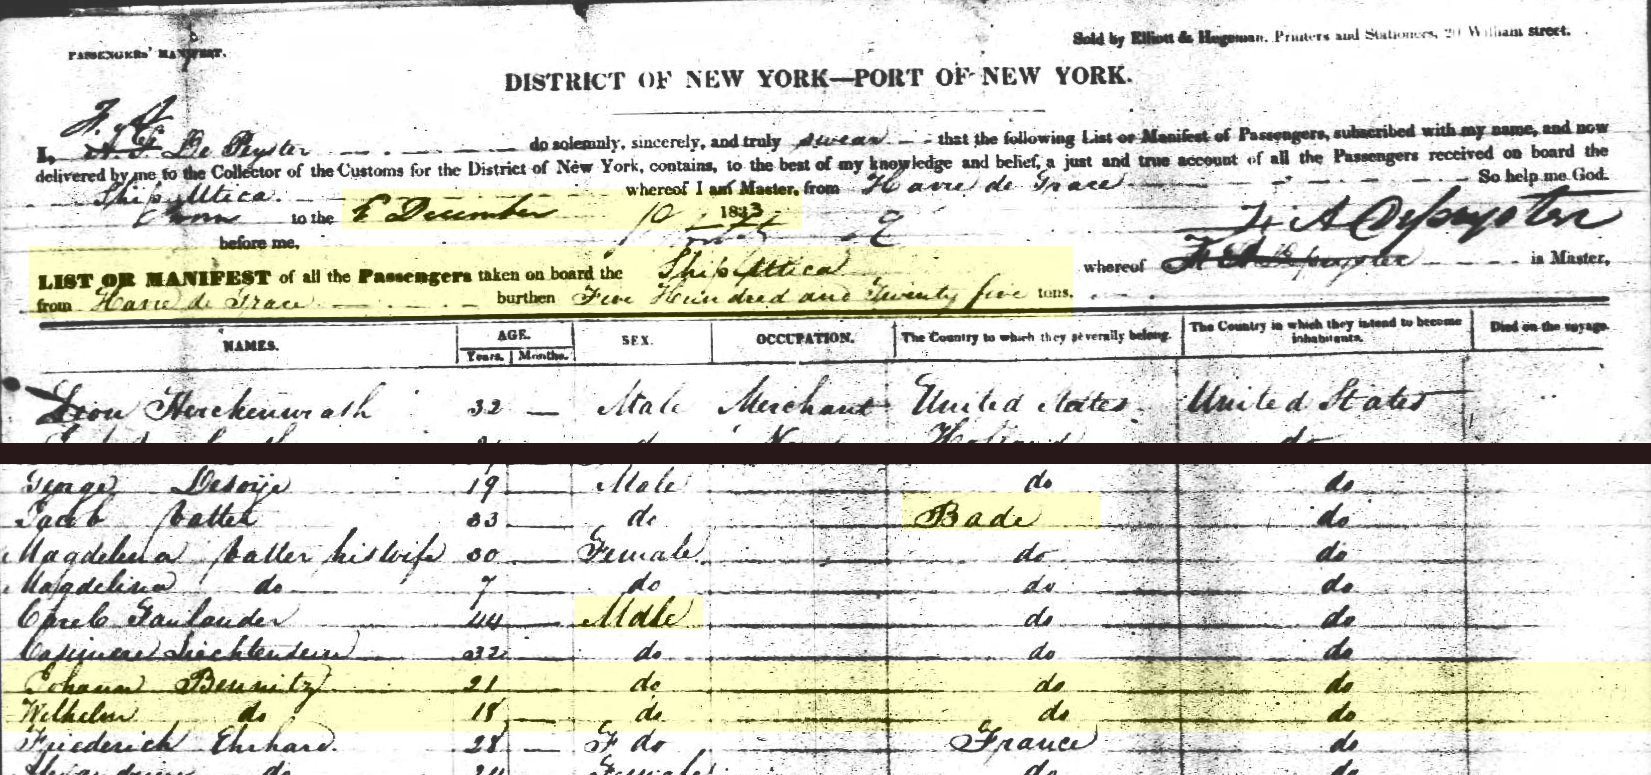 PASSENGERS' MANIFEST.
Sold by Elliott & Hegeman, Printers and Stationers, 20 William street.
DISTRICT OF NEW YORK—PORT OF NEW YORK.
F. A
I, A. F De Peyster do solemnly, sincerely, and truly swear that the following List or Manifest of Passengers, subscribed with my name, and now
delivered by me to the Collector of the Customs for the District of New York, contains, to the best of my knowledge and belief, a just and true account of all the Passengers received on board the
Ship Utica whereof I am Master, from Havre de Grace So help me God.
Sworn to the 6 December 1833 F. A Depeyster
before me,
LIST OR MANIFEST of all the Passengers taken on board the Ship Utica whereof F. A Depeyster is Master,
from Havre de Grace burthen Five Hundred and Twenty five tons.
NAMES. AGE. SEX. OCCUPATION. The Country to which they severally belong. The Country in which they intend to become inhabitants. Died on the voyage.
Years. Months.
Leon Herckenrath 32 — Male Merchant United States United States
Holland do
George 19 Male do do
Jacob Vatter 33 do Bade do
Magdelena Vatter his wife 30 Female do do
Magdelina do 7 do do do
Carel 44 Male do do
32 do do do
Johann Bennitz 21 do do do
Wilhelm do 18 do do do
Friederich Ehrhard 28 — F do France do
do 24 Female do do